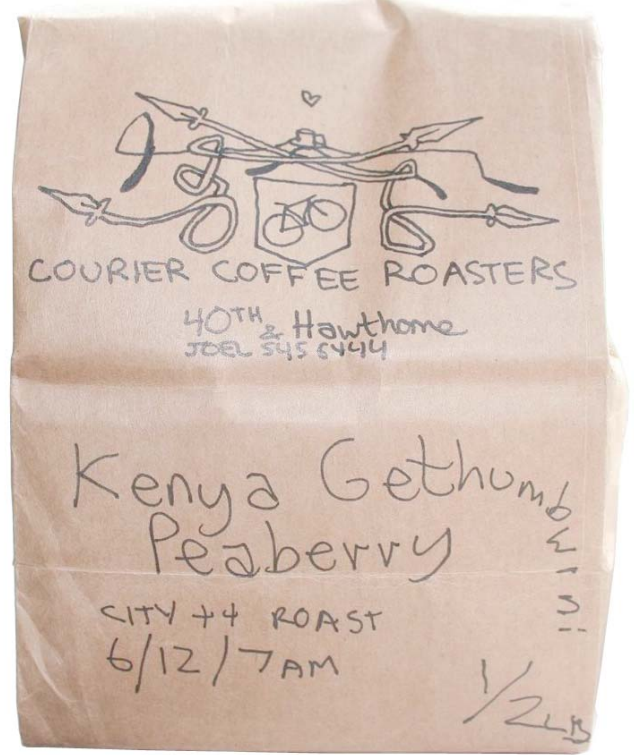 COURIER COFFEE ROASTERS
40TH & Hawthorne
JOEL 545 6444
Kenya Gethumbwini
Peaberry
CITY ++ ROAST
6/12/7AM
1/2 LB